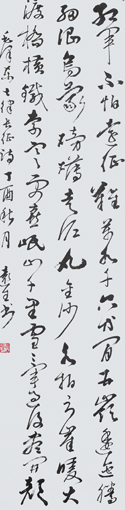 紅軍不怕遠征難萬水千山只等閑五嶺逶迤騰
細浪烏蒙磅礴走泥丸金沙水拍雲崖暖大
渡橋橫鐵索寒更喜岷山千里雪三軍過後盡開顏
毛澤東七律長征詩丁酉秋月
書